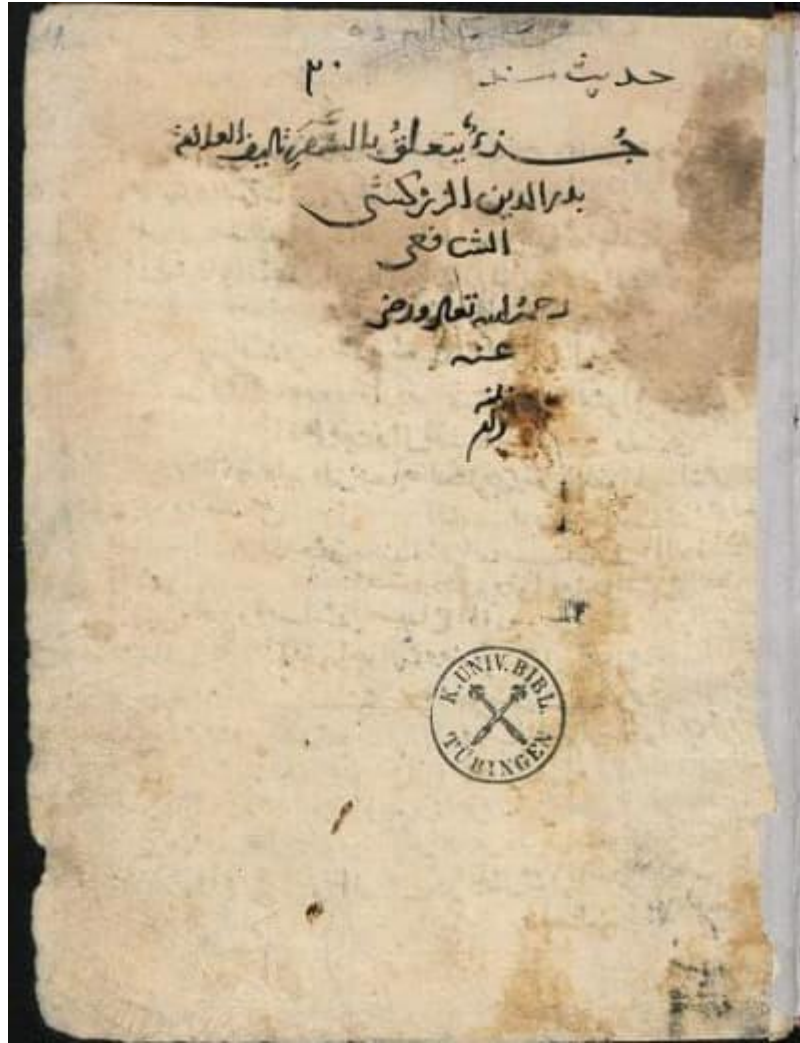 حديث سند ٣٠
جُزءٌ يتعلقُ بالسَّفَرِ تاليف العلامة
بدر الدين الزركشي
الشافعي
رحمه الله تعالى ورضي
عنه
K. UNIV. BIBL.
TÜBINGEN